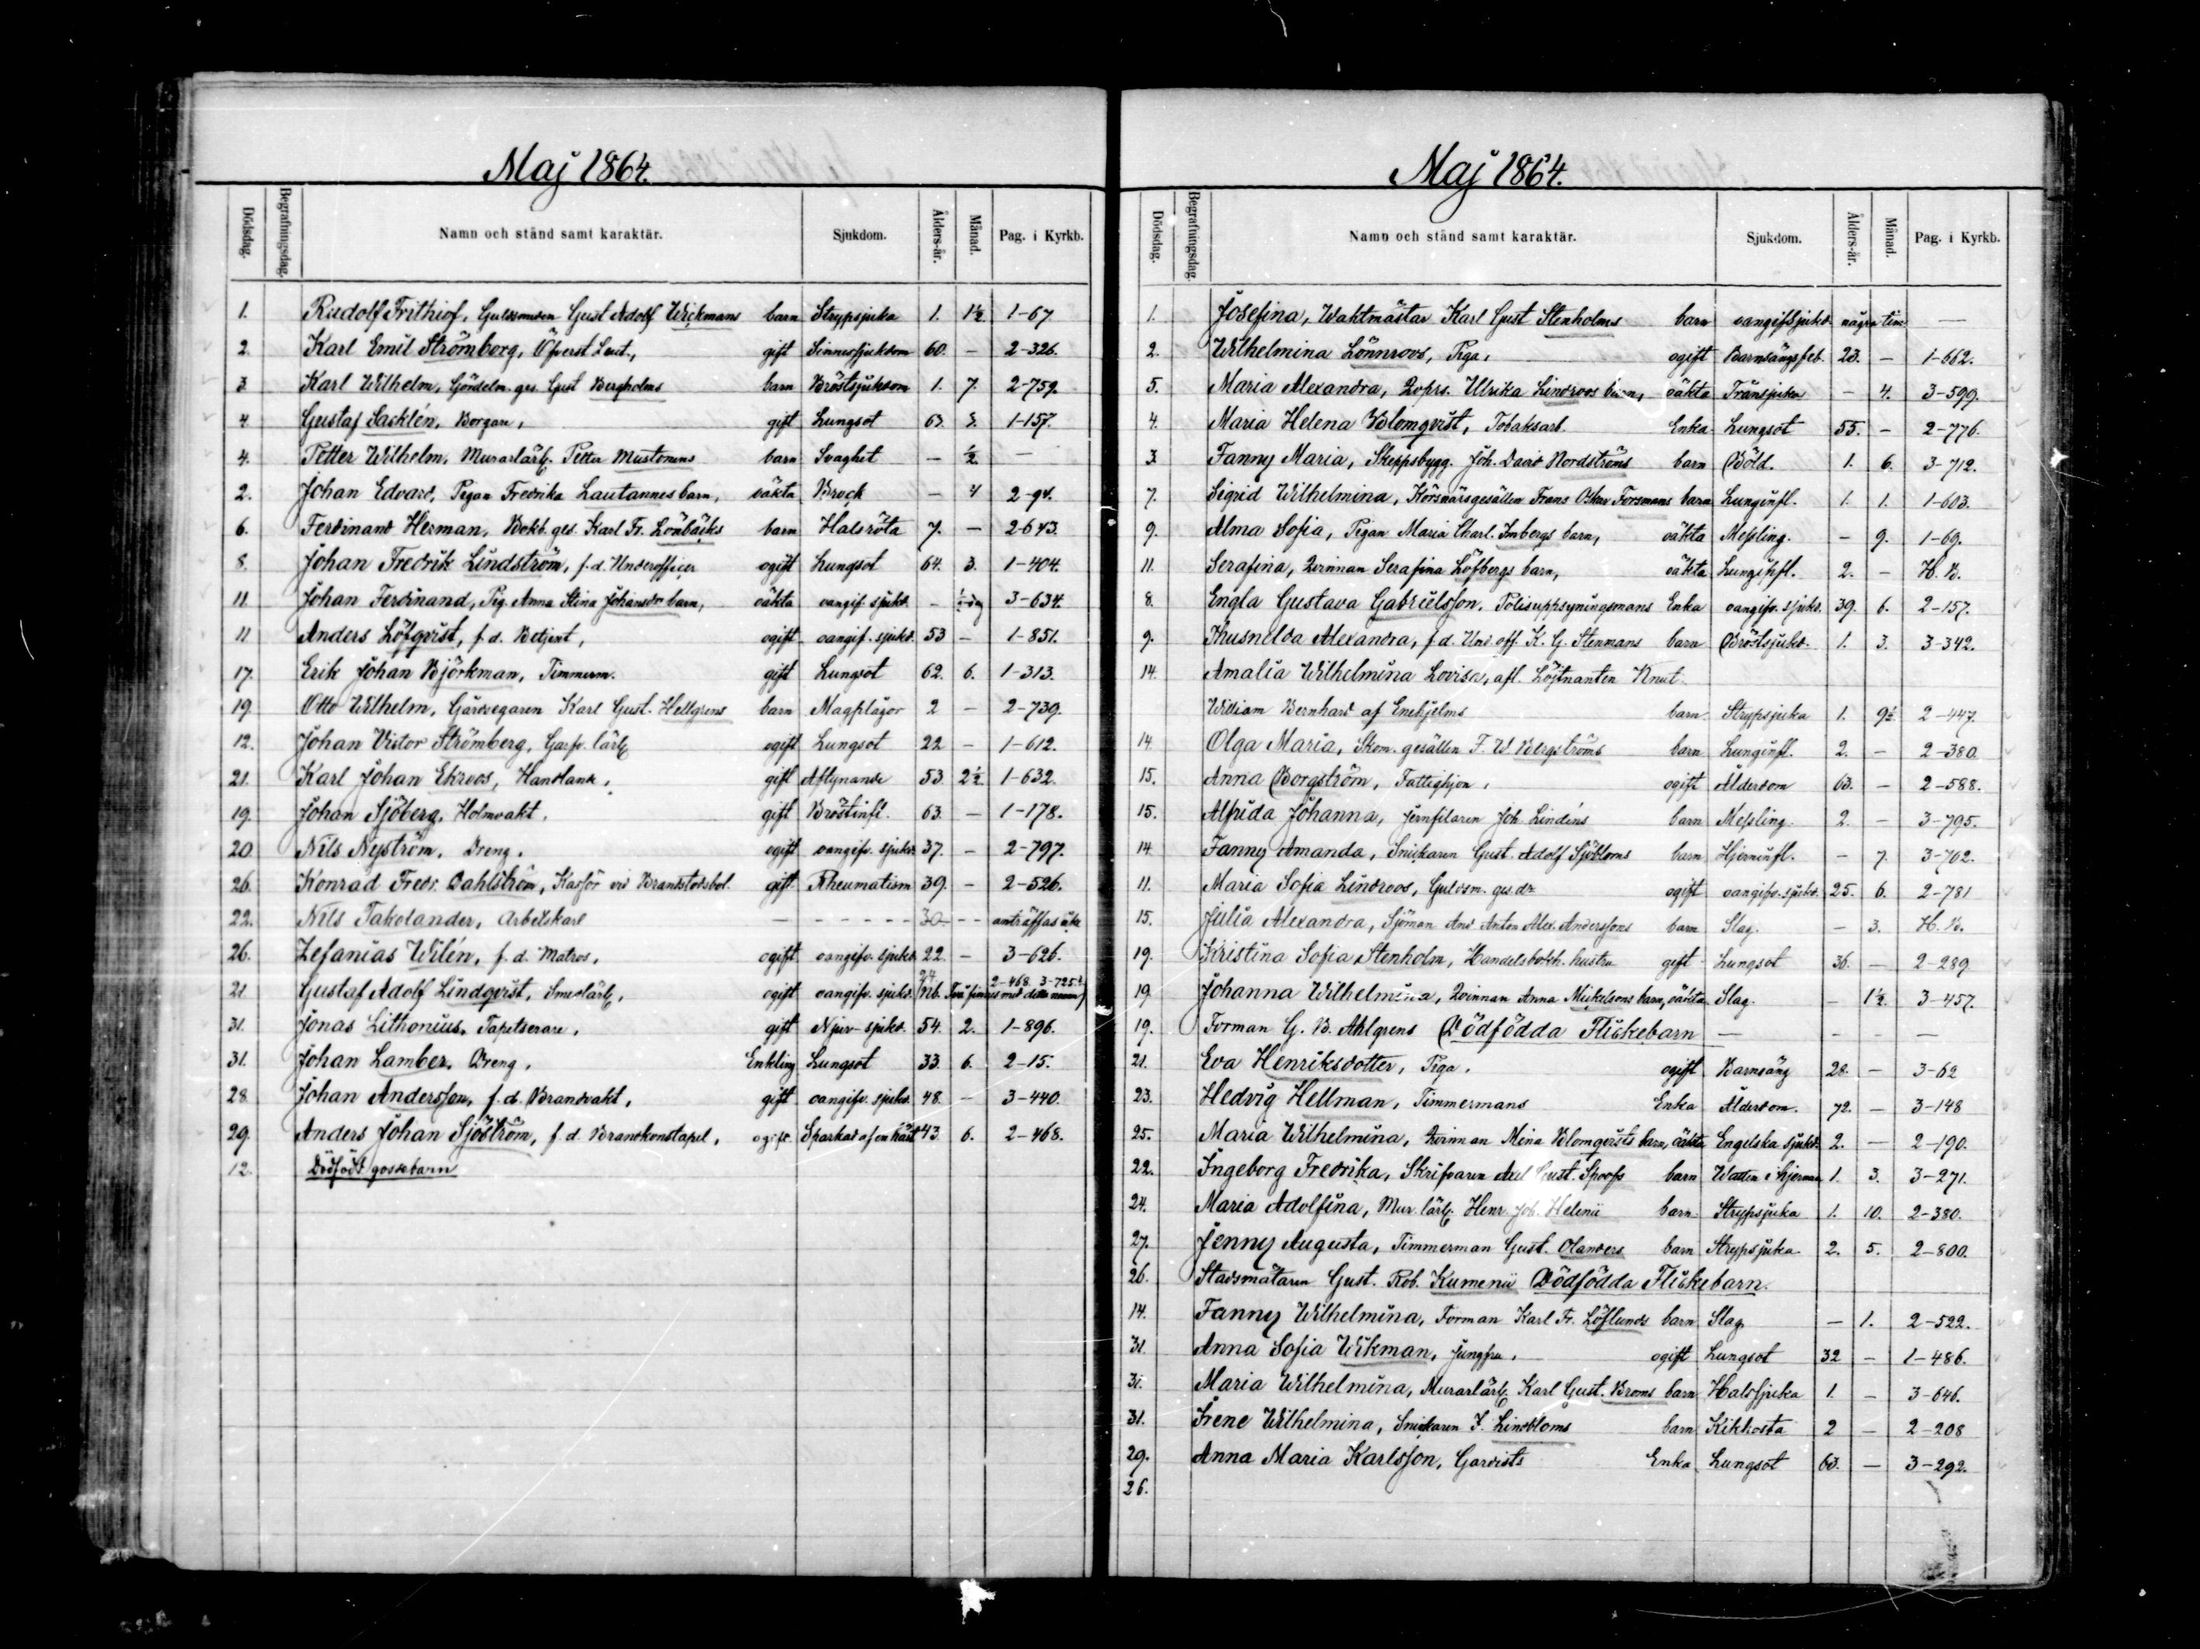 Maj 1864.
Dödsdag. Begrafningsdag. Namn och stånd samt karaktär. Sjukdom. Ålders-år. Månad. Pag. i Kyrkb.
1. Rudolf Frithiof, Guldsmeden Gust Adolf Wickmans barn Strypsjuka 1. 1½ 1-67
2. Karl Emil Strömborg, Öfverst Leut., gift Sinnessjukdom 60. - 2-326.
3. Karl Wilhelm, Gördelm. ges. Gust Bergholms barn Bröstsjukdom 1. 7. 2-759.
4. Gustaf Sacklén, Borgare, gift Lungsot 63. 3. 1-157.
4. Petter Wilhelm, Murarlärl. Petter Mustonens barn Svaghet - ½ -
2. Johan Edvard, Pigan Fredrika Lautannes barn, oäkta Bråck - 4 2-94.
6. Ferdinand Herman, Bokb. ges. Karl Fr. Lönbäcks barn Halsröta 7. - 2-643.
8. Johan Fredrik Lindström, f.d. Underofficer ogift Lungsot 64. 3. 1-404.
11. Johan Ferdinand, Pig. Anna Stina Johansdr barn, oäkta oangif. sjukd. - ½ dag 3-634.
11. Anders Löfqvist, f.d. Betjent, ogift oangif. sjukd. 53 - 1-851.
17. Erik Johan Björkman, Timmerm. gift Lungsot 62. 6. 1-313.
19. Otto Wilhelm, Gårdsegaren Karl Gust. Hellgrens barn Magplågor 2 - 2-739.
12. Johan Victor Strömberg, Garfv. lärl. ogift Lungsot 22 - 1-612.
21. Karl Johan Ekroos, Handlande, gift Aftynande 53 2½. 1-632.
19. Johan Sjöberg, Holmvakt, gift Bröstinfl. 63. - 1-178.
20. Nils Nyström, Dreng, ogift oangifv. sjukd. 37. - 2-797.
26. Konrad Fredr. Dahlström, Kasför vid Brandstodsbol. gift Rheumatism 39. - 2-526.
22. Nils Takolander, Arbetskarl - - - - - 30 - - anträffas icke
26. Zefanias Wilén, f.d. Matros, ogift oangifv. sjukd. 22. - 3-626.
21. Gustaf Adolf Lindqvist, Smedlärl., ogift oangifv. sjukd. 24 2-468. 3-725?
(Nb. Två finnas med detta namn)
31. Jonas Lithonius, Tapetserare, gift Njur-sjukd. 54. 2. 1-896.
31. Johan Lamber, Dreng, Enkling Lungsot 33. 6. 2-15.
28. Johan Andersson, f.d. Brandvakt, gift oangifv. sjukd. 48. - 3-440.
29. Anders Johan Sjöström, f.d. Brandkonstapel, ogift Sparkad af en häst 43. 6. 2-468.
12. Dödfödt gossebarn
Maj 1864.
Dödsdag. Begrafningsdag Namn och stånd samt karaktär. Sjukdom. Ålders-år. Månad. Pag. i Kyrkb.
1. Josefina, Waktmästar Karl Gust Stenholms barn oangif. sjukd. några tim -
2. Wilhelmina Lönnroos, Piga, ogift Barnsängsfeb. 23. - 1-662.
5. Maria Alexandra, Ulrika Lindroos barn, oäkta Trånsjuka - 4. 3-599.
4. Maria Helena Blomqvist, Tobaksarb. Enka Lungsot 55. - 2-776.
3. Fanny Maria, Skeppsbygg. Joh. David Nordströms barn Böld. 1. 6. 3-712.
7. Sigrid Wilhelmina, Körsnärsgesällen Frans Oskar Forsmans barn Lunginfl. 1. 1. 1-603.
9. Alma Sofia, Pigan Maria Charl. Imbergs barn, oäkta Messling. - 9. 1-69.
11. Serafina, Qvinnan Serafina Löfbergs barn, oäkta Lunginfl. 2. - H. B.
8. Engla Gustava Gabrielsson, Polisuppsyningsmans Enka oangifv. sjukd. 39. 6. 2-157.
9. Thusnelda Alexandra, f.d. Und. off. K. G. Stenmans barn Bröstsjukd. 1. 3. 3-342.
14. Amalia Wilhelmina Lovisa, afl. Löjtnanten Knut
William Bernhard af Enehjelms barn Strypsjuka 1. 9½ 2-447.
14. Olga Maria, Skom. gesällen F. W. Bergströms barn Lunginfl. 2. - 2-380.
15. Anna Borgström, Fattighjon, ogift Ålderdom 63. - 2-588.
15. Alfrida Johanna, Jernfilaren Joh. Lindéns barn Messling. 2. - 3-795.
14. Fanny Amanda, Snickaren Gust. Adolf Sjöbloms barn Hjerninfl. - 7. 3-762.
11. Maria Sofia Lindroos, Guldsm. ges. dr ogift oangifv. sjukd. 25. 6. 2-781
15. Julia Alexandra, Sjöman And Anton Alex. Anderssons barn Slag. - 3. H. B.
19. Kristina Sofia Stenholm, Handelsbokh. hustru gift Lungsot 36. - 2-289
19. Johanna Wilhelmina, Qvinnan Anna Mickelsons barn, oäkta Slag. - 1½. 3-457.
19. Forman G. B. Ahlgrens Dödfödda Flickebarn - - - -
21. Eva Henriksdotter, Piga, ogift Barnsäng 28. - 3-62
23. Hedvig Hellman, Timmermans Enka Ålderdom. 72. - 3-148
25. Maria Wilhelmina, Qvinnan Mina Blomqvists barn, oäkta Engelska sjukd. 2. - 2-190.
22. Ingeborg Fredrika, Skrifvaren Axel Gust. Spoofs barn Watten i hjernan 1. 3. 3-271.
24. Maria Adolfina, Mur. lärl. Henr Joh. Helenii barn Strypsjuka 1. 10. 2-380.
27. Jenny Augusta, Timmerman Gust. Olanders barn Strypsjuka 2. 5. 2-800.
26. Stadsmätaren Gust. Rob. Kumenii Dödfödda Flickebarn.
14. Fanny Wilhelmina, Forman Karl Fr. Löflunds barn Slag - 1. 2-522.
31. Anna Sofia Wikman, Jungfru, ogift Lungsot 32 - 1-486.
31. Maria Wilhelmina, Murarlärl. Karl Gust. Broms barn Halssjuka 1. - 3-646.
31. Irene Wilhelmina, Snickaren F. Lindbloms barn Kikhosta 2 - 2-208
29. Anna Maria Karlsson, Gardists Enka Lungsot 63. - 3-292.
26.